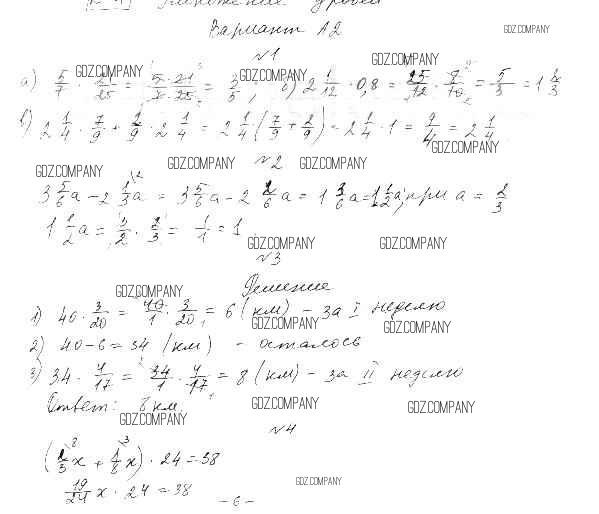 Вариант А2
GDZ.COMPANY
№1
GDZ.COMPANY GDZ.COMPANY GDZ.COMPANY
а) 5/7 · 21/25 = 5·21/7·25 = 3/5; б) 2 1/12 · 0,8 = 25/12 · 8/10 = 5/3 = 1 2/3
в) 2 1/4 · 7/9 + 2/9 · 2 1/4 = 2 1/4 (7/9 + 2/9) = 2 1/4 · 1 = 9/4 = 2 1/4
GDZ.COMPANY
№2
GDZ.COMPANY GDZ.COMPANY GDZ.COMPANY
3 5/6 а - 2 1/3 а = 3 5/6 а - 2 2/6 а = 1 3/6 а = 1 1/2 а, при а = 2/3
1 1/2 а = 3/2 · 2/3 = 1/1 = 1
GDZ.COMPANY GDZ.COMPANY
№3
Решение
GDZ.COMPANY
1) 40 · 3/20 = 40/1 · 3/20 = 6 (км) - за I неделю
GDZ.COMPANY GDZ.COMPANY
2) 40-6 = 34 (км) - осталось
3) 34 · 4/17 = 34/1 · 4/17 = 8 (км) - за II неделю
Ответ: 8 км.
GDZ.COMPANY GDZ.COMPANY GDZ.COMPANY
№4
(2/3 х + 1/8 х) · 24 = 38
19/24 х · 24 = 38
GDZ.COMPANY
- 6 -